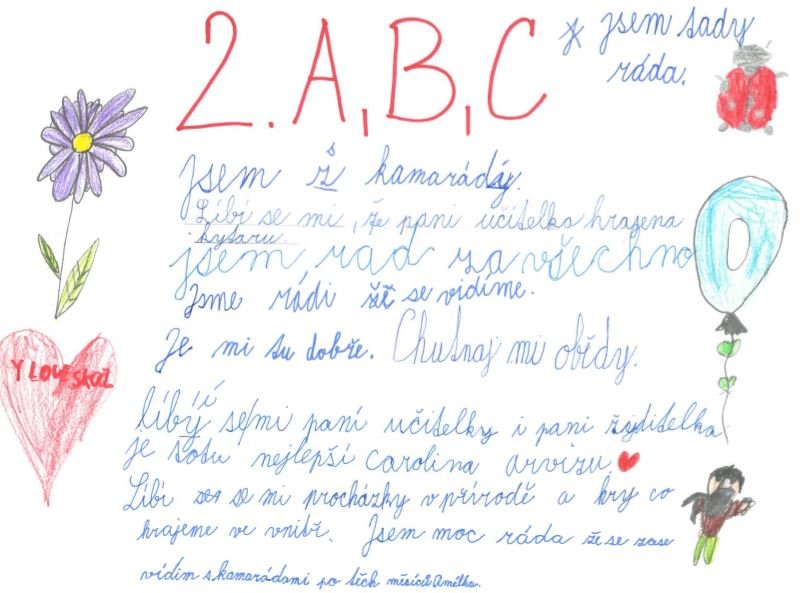 2. A, B, C
jsem tady
ráda.
jsem s kamarády.
Líbí se mi, že pani učitelka hrajena
kytaru.
jsem rad za všechno
Jsme rádi že se vidíme.
Je mi tu dobře. Chutnaj mi obědy.
Y LOVE SKOL
líbýjí se mi paní učitelky i pani
je totu nejlepší Carolina arvizu.
Líbí se mi procházky v přírodě a hry co
hrajeme ve vnitř. Jsem moc ráda že se zase
vidím s kamarádami po těch měsících Amélka.